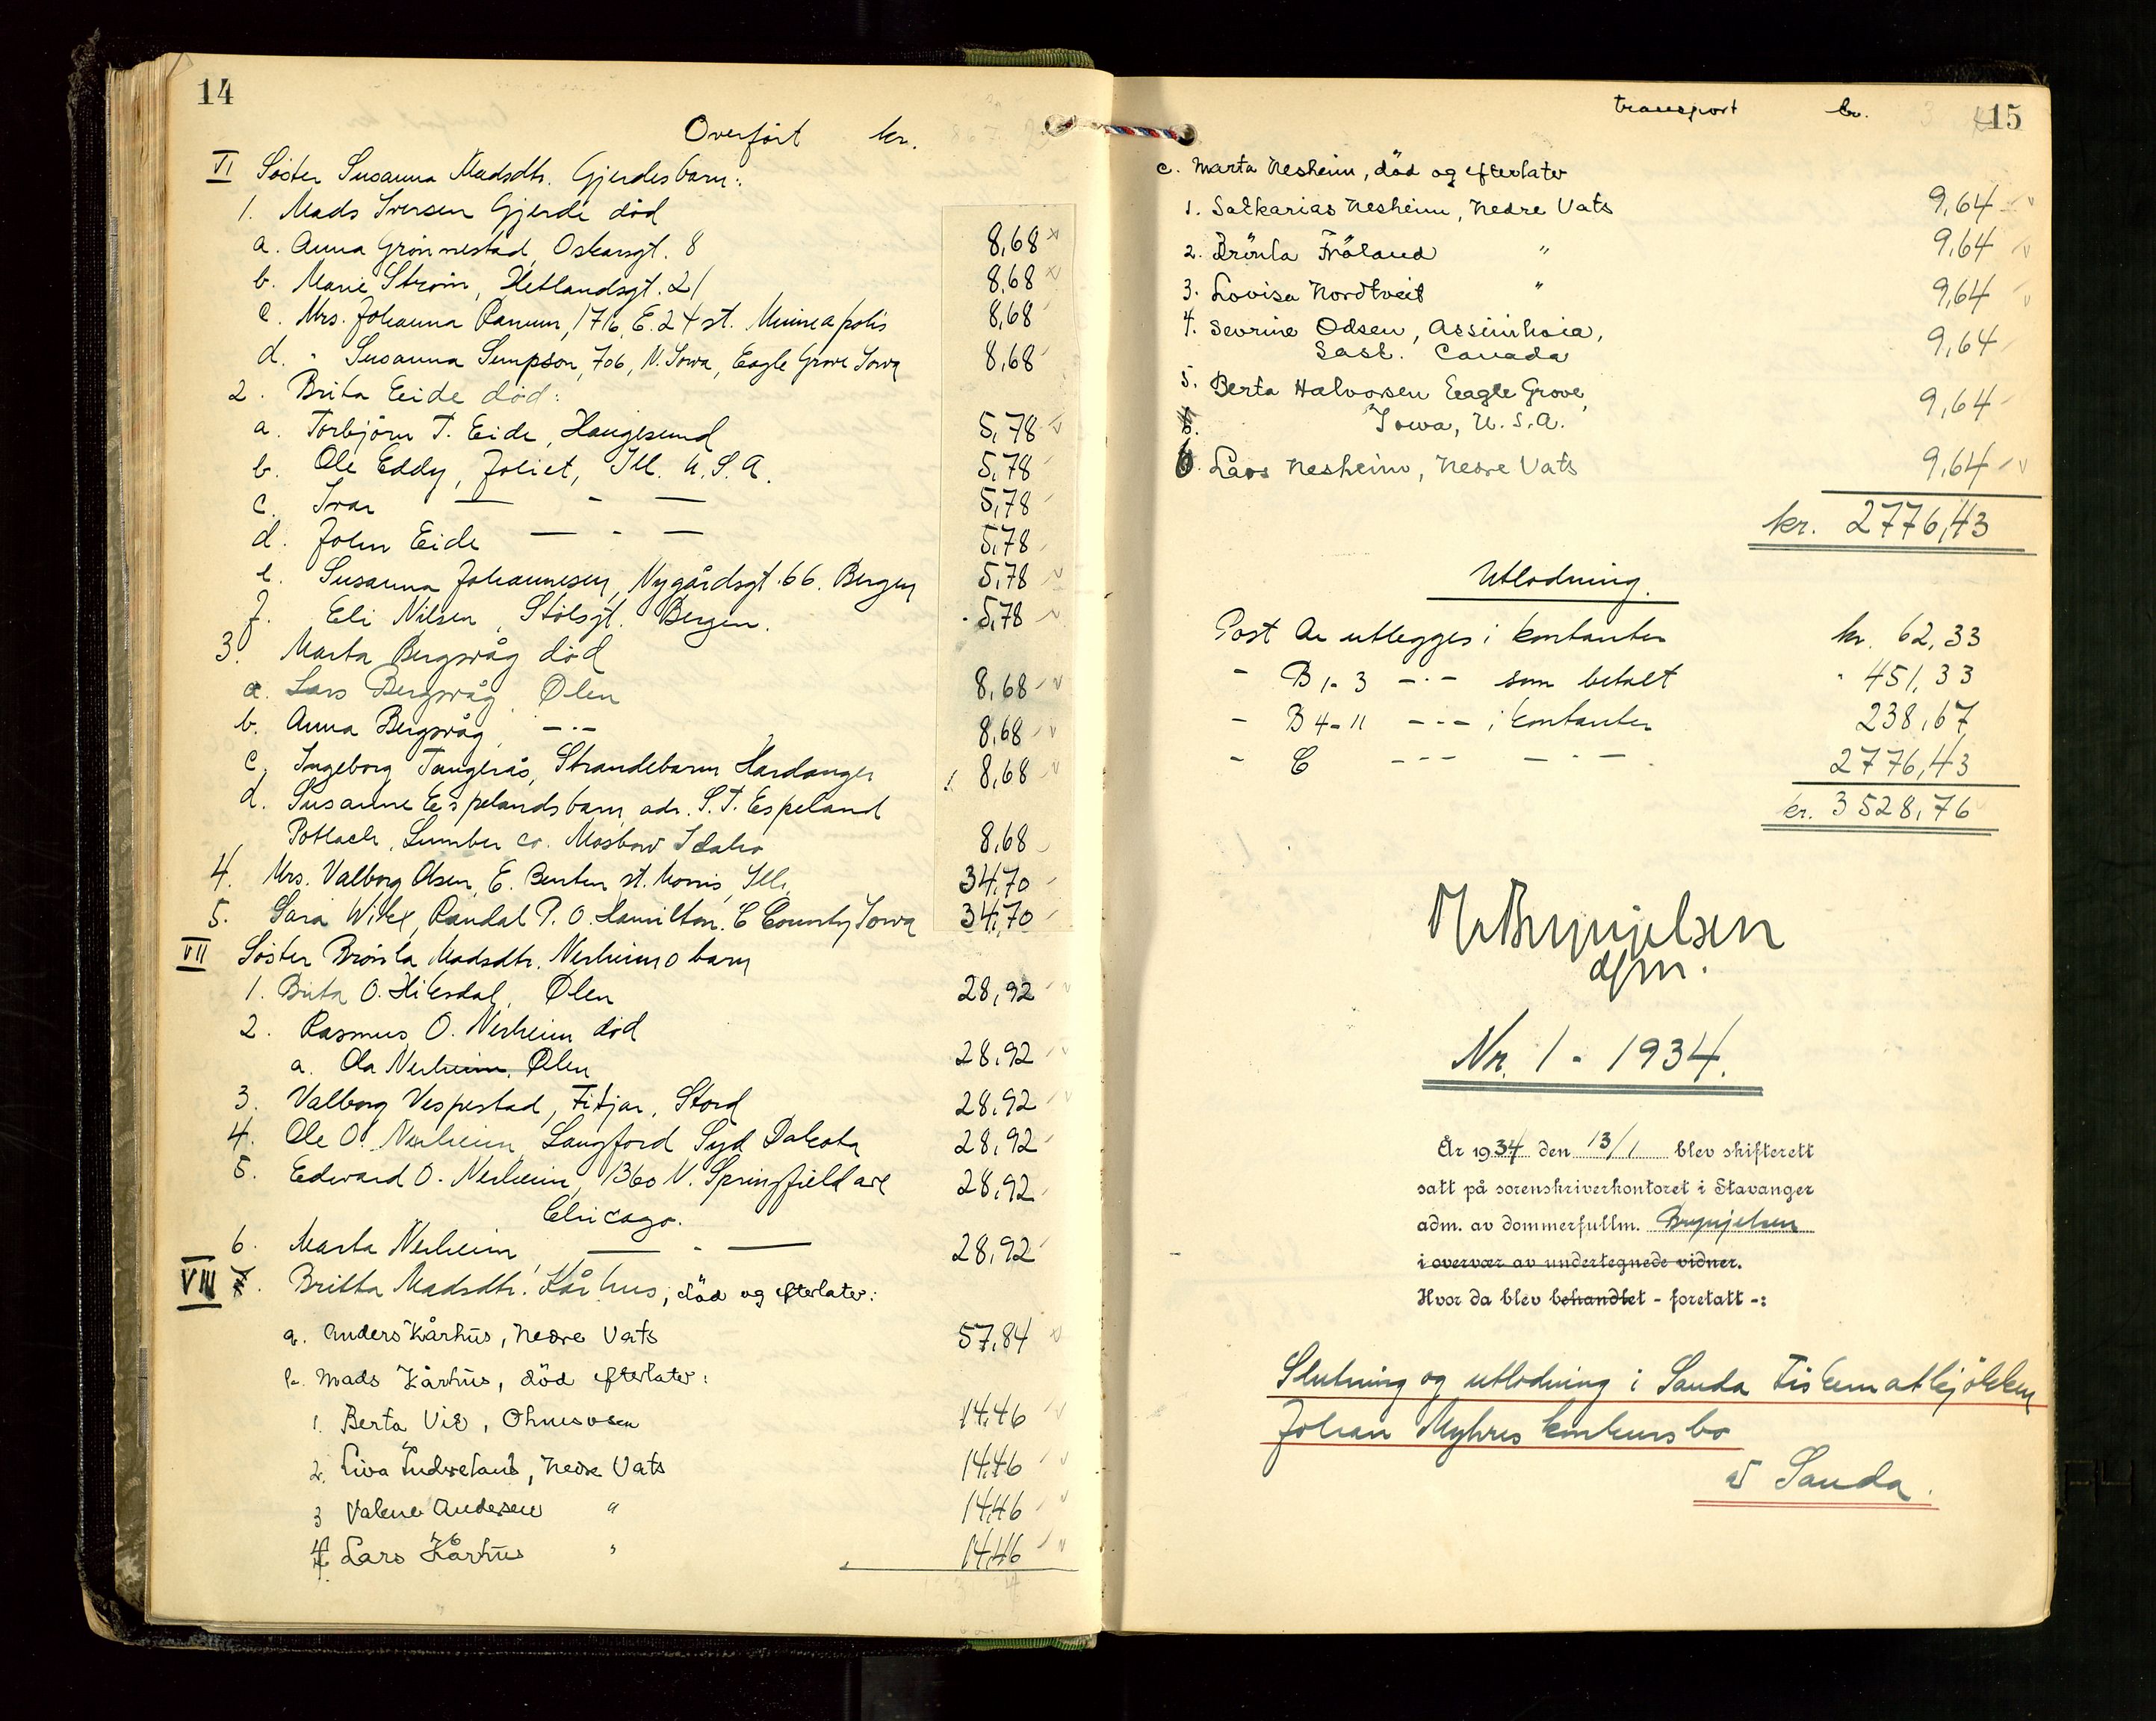 14
Overført kr.
VI Søster Susanna Madsdtr. Gjerdes barn:
1. Mads Iversen Gjerde död
a. Anna Grönnestad, Oskarsgt. 8 8,68
b. Marie Ström, Hetlandsgt. 21 8,68
c. Mrs. Johanna Ranum, 1716, E. 24 st. Minneapolis 8,68
d. " Susanna Simpson, 706, N. Iowa, Eagle Grove Iowa 8,68
2. Brita Eide död:
a. Torbjörn T. Eide, Haugesund 5,78
b. Ole Eddy, Joliet, Ill. U.S.A. 5,78
c. Ivar — - — 5,78
d. John Eide — - — 5,78
e. Susanna Johannesen, Nygårdsgt. 66. Bergen 5,78
f. Eli Nilsen, Stölsgt. Bergen. 5,78
3. Marta Bergsvåg död
a. Lars Bergsvåg, Ølen 8,68
b. Anna Bergsvåg, -·- 8,68
c. Ingeborg Tangerås, Strandebarm Hardanger 8,68
d. Susanne Espelands barn, adr. S. T. Espeland
Potlach, Lumber co. Moskow Idaho 8,68
4. Mrs. Valborg Olsen, E. Benton st. Morris, Ill. 34,70
5. Sara Wikel, Randal P.O. Hamilton. C County Iowa 34,70
VII Søster Brönla Madsdtr. Nerheims barn
1. Brita O. Hilesdal, Ølen 28,92
2. Rasmus O. Nerheim död
a. Ola Nerheim, Ølen 28,92
3. Valborg Vespestad, Fitjar, Stord 28,92
4. Ole O. Nerheim, Langford Syd Dakota 28,92
5. Edward O. Nerheim, 1360 N. Springfield ave 28,92
Chicago.
6. Marta Nerheim — - — 28,92
VIII 7. Britha Madsdtr. Kårhus, död og efterlater:
a. Anders Kårhus, Nedre Vats 57,84
b. Mads Kårhus, död efterlater:
1. Berta Vie, Ohmsosen 14,46
2. Liva Tudveland, Nedre Vats 14,46
3 Valene Andersen " 14,46
4 Lars Kårhus " 14,46
transport kr. 15
c. Marta Nesheim, död og efterlater
1. Sakkarias Nesheim, Nedre Vats 9,64
2. Brönla Fröland " 9,64
3. Lovisa Nordtveit " 9,64
4. Sevrine Odsen, Assinihoia, 9,64
Sask. Canada
5. Berta Halvorsen Eeagle Grove, 9,64
Iowa, U.S.A.
6. Lars Nesheim, Nedre Vats 9,64
kr. 2776,43
Utlodning.
Post A utlegges i kontanter kr. 62,33
- B 1-3 -·- som betalt " 451,33
- B 4-11 --- i kontanter 238,67
- C --- - · - 2776,43
kr. 3528,76
M. Brynjelsen
dfm.
Nr. 1 - 1934.
År 1934 den 13/1 blev skifterett
satt på sorenskriverkontoret i Stavanger
adm. av dommerfullm. Brynjelsen
i overvær av undertegnede vidner.
Hvor da blev behandlet - foretatt -:
Slutning og utlodning i Sauda Fiskematkjökken
Johan Myhres konkursbo
av Sauda.